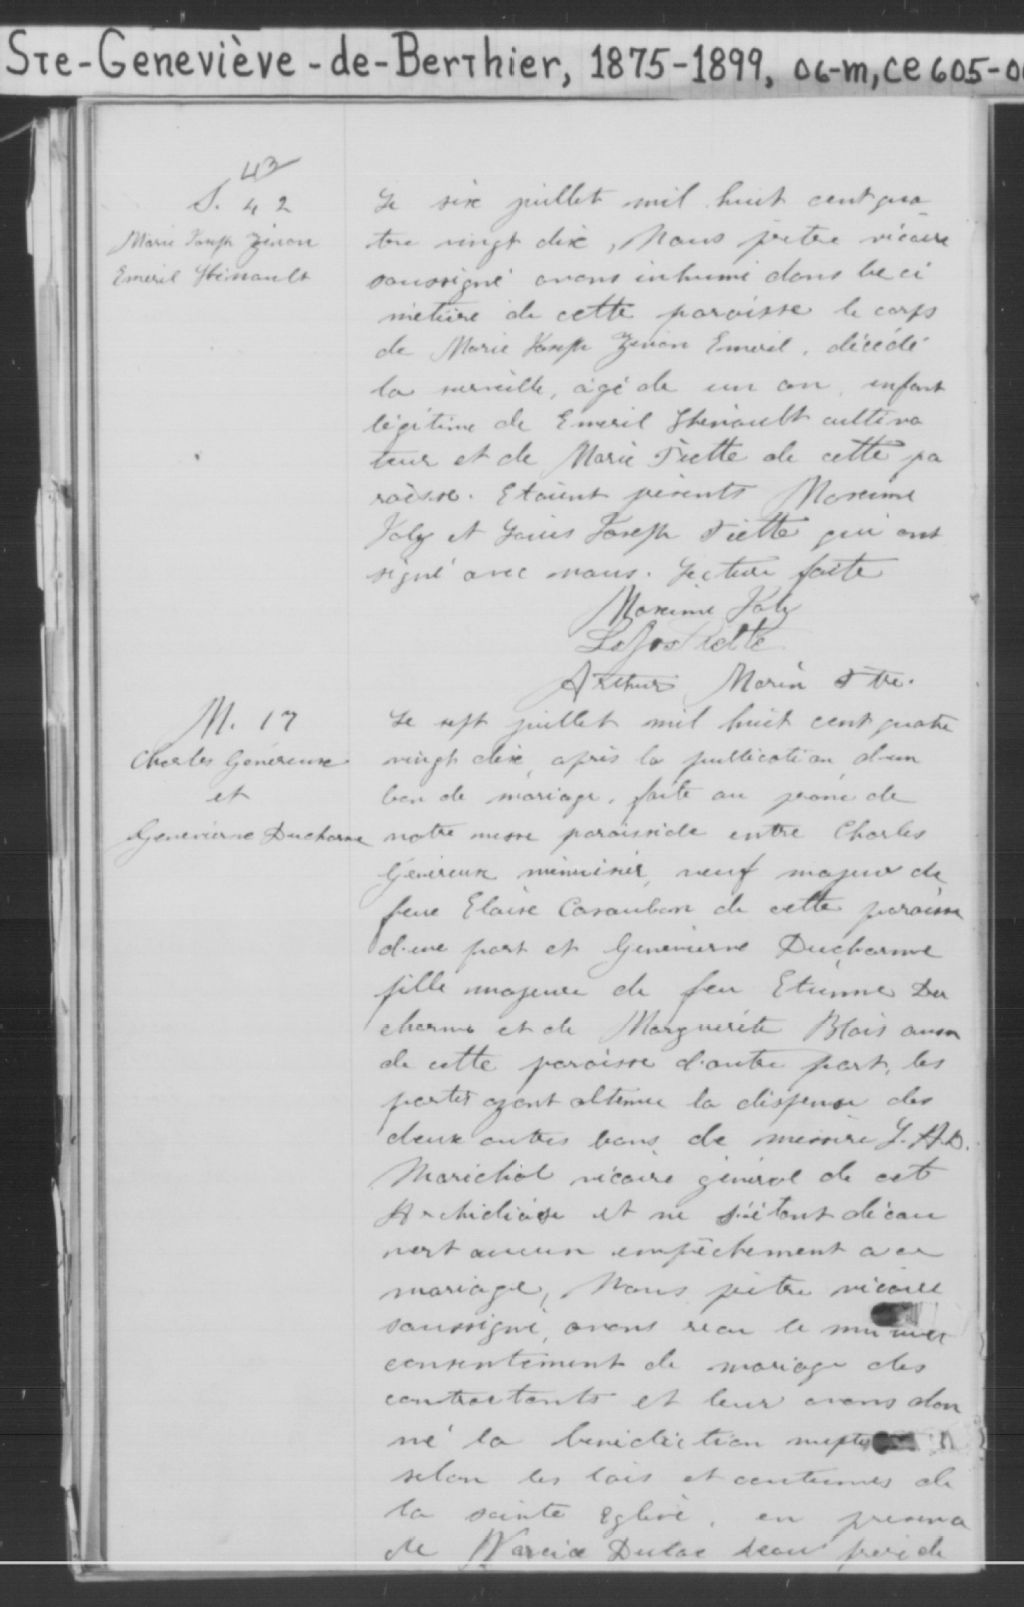 Ste-Geneviève-de-Berthier, 1875-1899, 06-m, CE605-0
43
S. 42
Marie Joseph Zénon
Emeril Hénault
Le six juillet mil huit cent qua
tre vingt dix, Nous prêtre vicaire
soussigné avons inhumé dans le ci
metière de cette paroisse le corps
de Marie Joseph Zénon Emeril, décédé
la surveille, agé de un an, enfant
légitime de Emeril Hénault cultiva
teur et de Marie Piette de cette pa
roisse. Etaient présents Maxime
Joly et Louis Joseph Piette qui ont
signé avec nous. Lecture faite
Maxime Joly
Ls Jos Piette
Arthur Marin Ptre.
M. 17
Charles Généreux
et
Geneviève Ducharme
Le sept juillet mil huit cent quatre
vingt dix, après la publication d'un
ban de mariage, faite au prone de
notre messe paroissiale entre Charles
Généreux menuisier, veuf majeur de
feue Eloise Casaubon de cette paroisse
d'une part et Geneviève Ducharme
fille majeure de feu Etienne Du
charme et de Marguerite Blais aussi
de cette paroisse d'autre part, les
parties ayant obtenue la dispense des
deux autres bans de messire L. A. D.
Maréchal vicaire général de cet
Archidiocèse et ne s'étant décou
vert aucun empêchement à ce
mariage, Nous prêtre vicaire
soussigné, avons reçu le mutuel
consentement de mariage des
contractants et leur avons don
né la bénédiction nuptiale
selon les lois et coutumes de
la sainte Eglise, en présence
de Narcisse Dulac beau père de